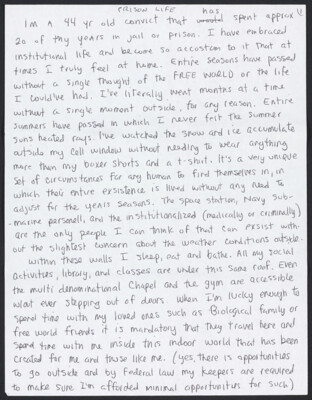 PRISON LIFE
I'm a 44 yr old convict that has spent approx
20 of thy years in jail or prison. I have embraced
institutional life and became so accustom to it that at
times I truly feel at home. Entire seasons have passed
without a single thought of the FREE WORLD or the life
I could've had. I've literally went months at a time
without a single moment outside, for any reason. Entire
summers have passed in which I never felt the summer
suns heated rays. I've watched the snow and ice accumulate
outside my cell window without needing to wear anything
more than my boxer shorts and a t-shirt. It's a very unique
set of circumstances for any human to find themselves in, in
which their entire existence is lived without any need to
adjust for the years seasons. The space station, Navy sub-
marine personell, and the institutionalized (medically or criminally)
are the only people I can think of that can exsist with-
out the slightest concern about the weather conditions outside.
within these walls I sleep, eat and bathe. All my social
activities, library, and classes are under this same roof. Even
the multi denominational Chapel and the gym are accessible
without ever stepping out of doors. When I'm lucky enough to
spend time with my loved ones such as Biological family or
free world friends it is mandatory that they travel here and
spend time with me inside this indoor world that has been
created for me and those like me. (yes, there is opportunities
to go outside and by Federal law my keepers are required
to make sure I'm afforded minimal opportunities for such)